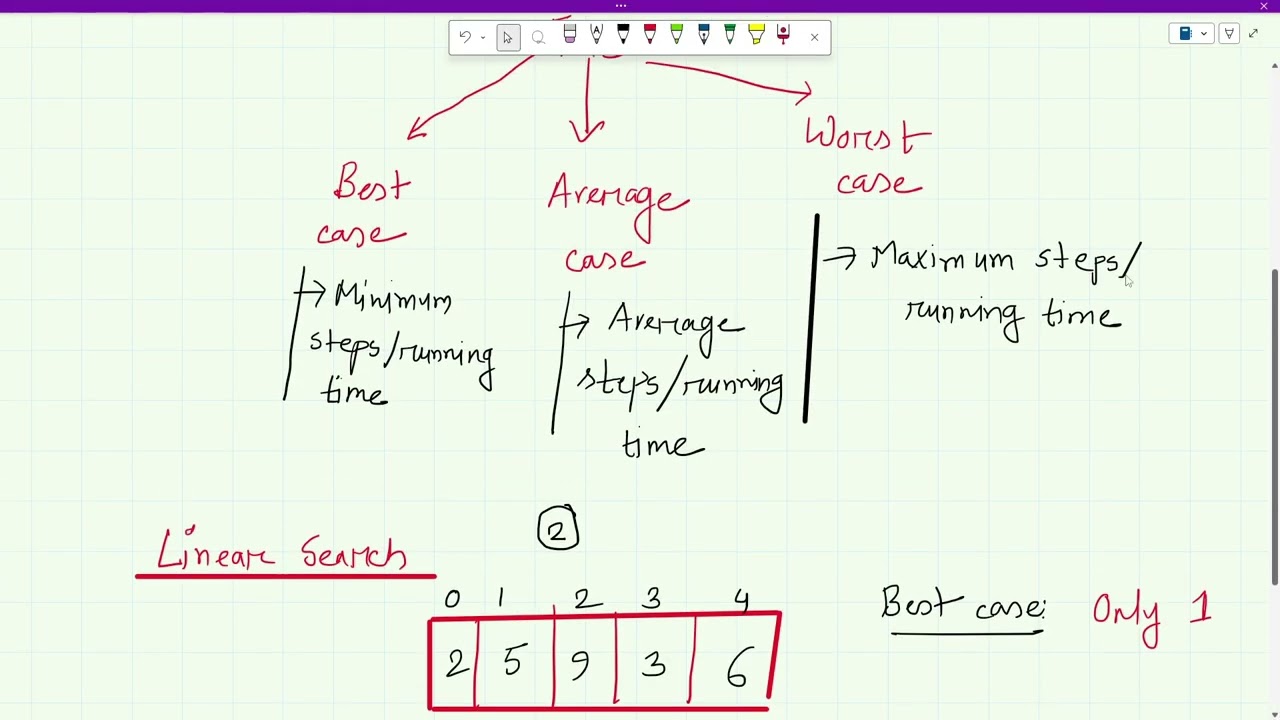 Best
case
→ Minimum
steps/running
time
Average
case
→ Average
steps/running
time
Worst
case
→ Maximum steps/
running time
Linear Search
2
0 1 2 3 4
2 5 9 3 6
Best case: Only 1